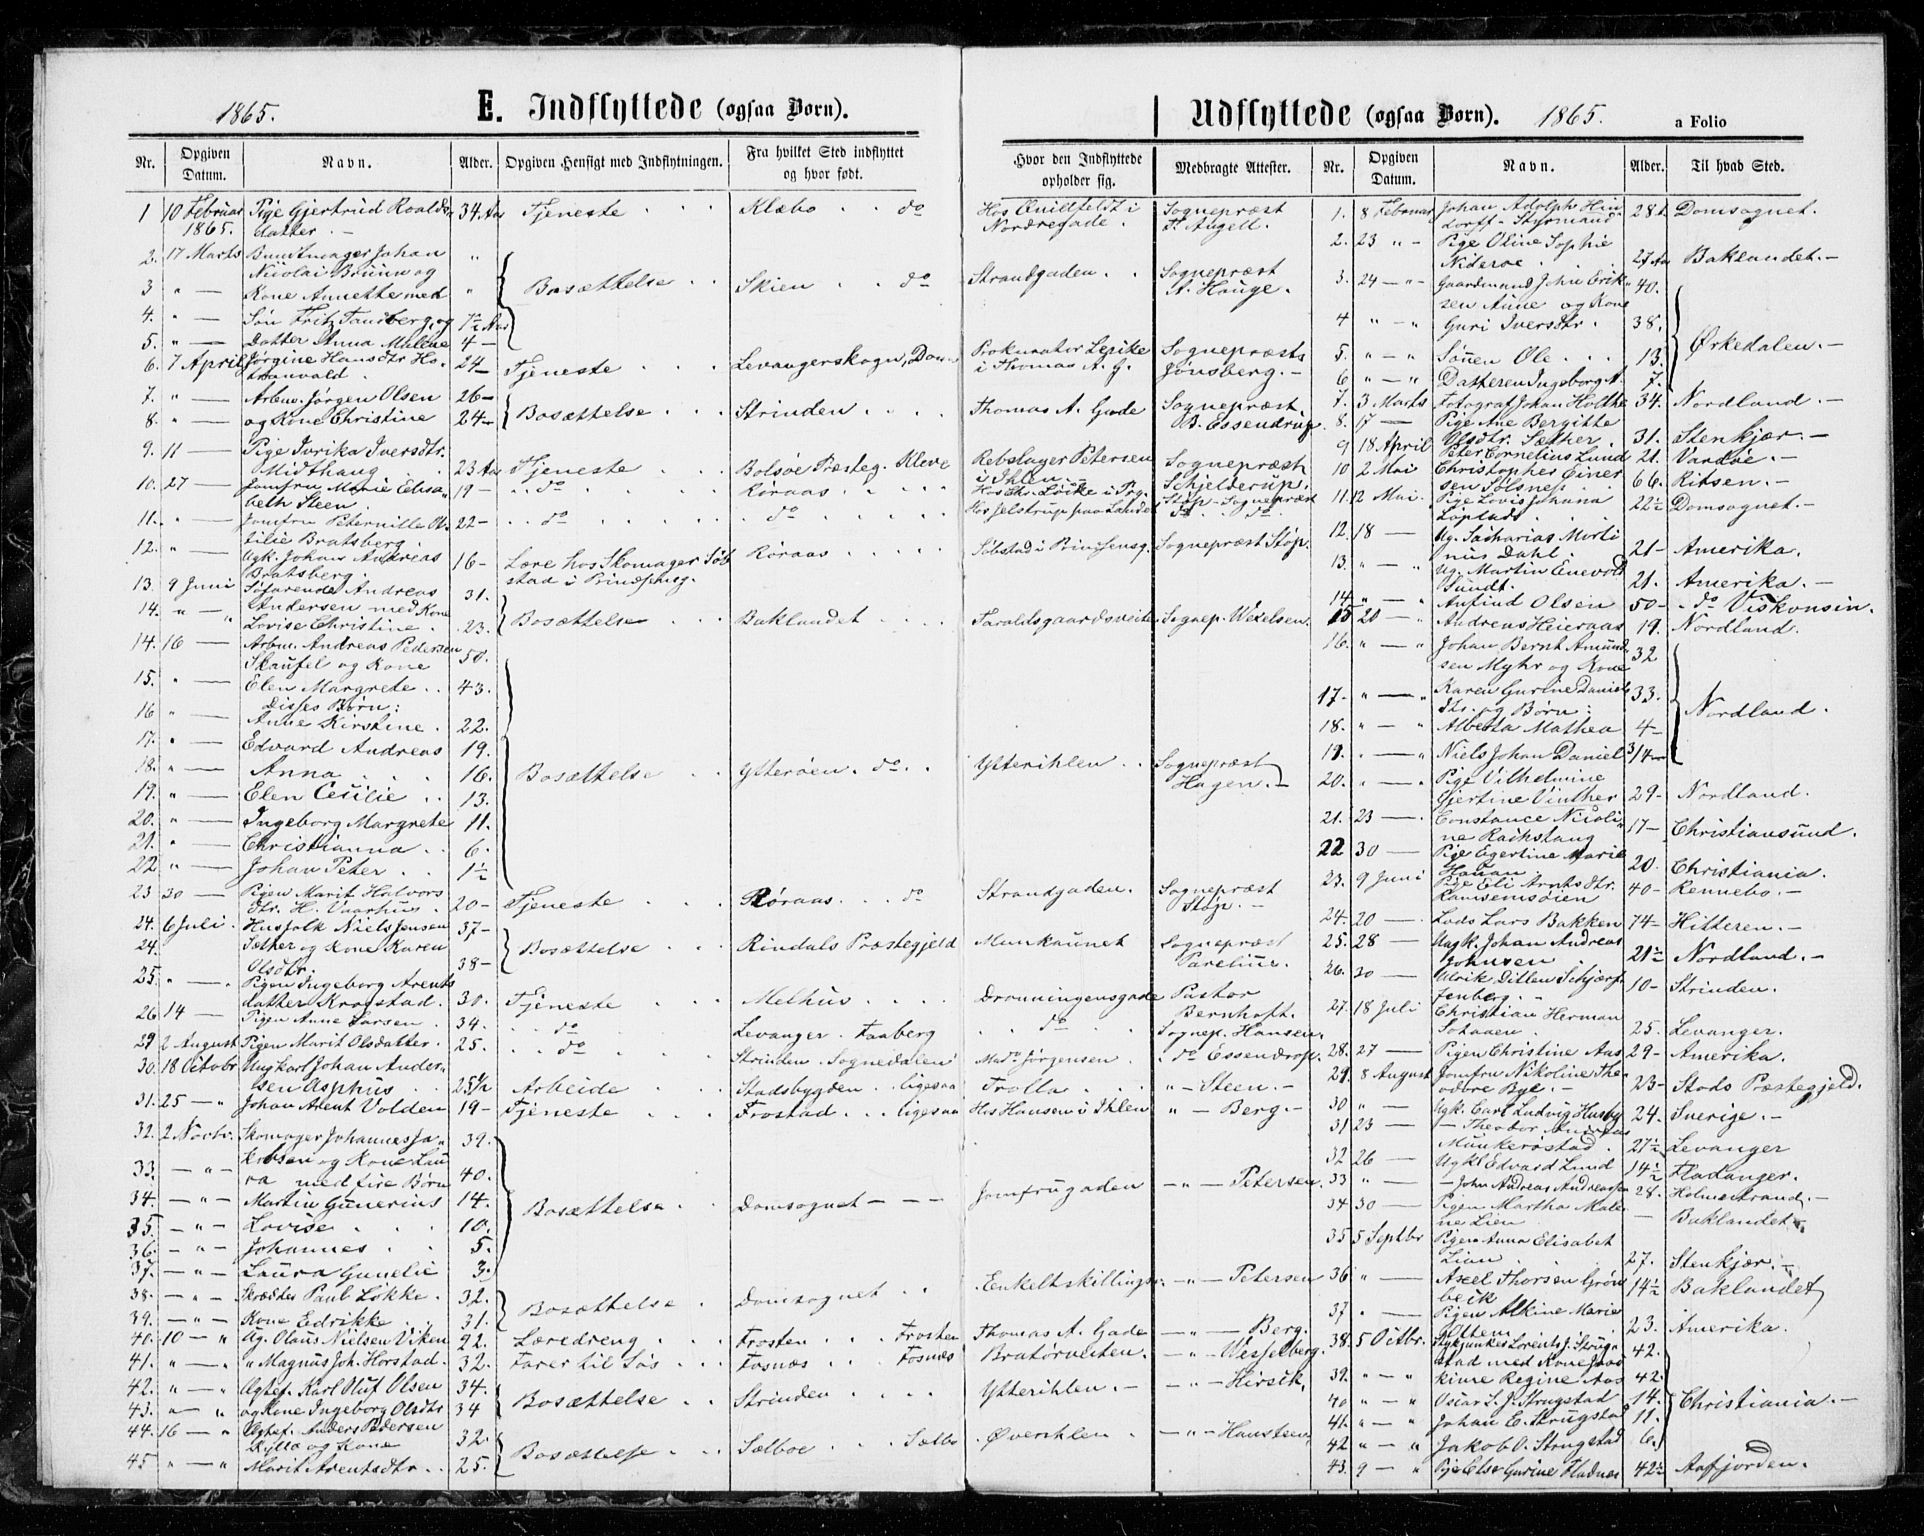 1865.
E. Indflyttede (ogsaa Børn).
Nr. Opgiven Datum. Navn. Alder. Opgiven Hensigt med Indflytningen. Fra hvilket Sted indflyttet og hvor født. Hvor den Indflyttede opholder sig. Medbragte Attester.
1 10 Februar 1865. Pige Gjertrud Roalds- datter. 34 Aar Tjeneste Klæbo do Hos Quillfeldt i Nordregade. Sognepræst F. Angell.
2. 17 Marts Buntmager Johan Nicolai Bruun og "
3 " — Kone Annette med " Bosættelse Skien do Strandgaden. Sognepræst A. Hauge.
4. " — Søn Fritz Tandberg, og 7½ Aar
5. " — Datter Anna Malene 4 —
6. 7 April Jørgine Hansdtr 24 — Tjeneste Levangerskogn, Prokurator Lepike i Thomas A. G. Sognepræst Jonsberg. —
7. " — Arbm. Jørgen Olsen 26 —
8. " — og Kone Christine 24 — Bosættelse Strinden Thomas A. Gade Sognepræst B. Essendrup.
9. 11 — Pige Iverdtr. Midthaug 23 Aar Tjeneste Bolsøe Præsteg. Kleve Rebslager Petersen i Ihlen. — Sognepræst Schjelderup.
10. 27 — Jomfru Marie Elisa- beth Steen. 19 — do Røraas
11. " — Jomfru Peternille Bratsberg. 22 — do do do do
12. " — Ugk. Johan Andreas Bratsberg 16 — Lære hos Skomager i Røraas Sognepræst Støp.
13. 9 Juni Søfarende Andreas 31.
14. " — " Andersen med Kone Lovise Christine. 23. Bosættelse Baklandet Taraldsgaardsveite Sognep. Wexelsen.
14. 16 — Arbm. Andreas Pedersen Skaufel og Kone 50.
15. " — Elen Margrete 43.
Disses Børn:
16 " — Anne Kirstine. 22.
17. " — Edvard Andreas 19.
18. " — Anna 16. Bosættelse Ytterøen. do Ytterihlen Sognepræst Hagen. —
19. " — Elen Cecilie 13.
20. " — Ingeborg Margrete 11.
21. " — Christianna 6.
22 " — Johan Peter 1½
23 30 — Pigen Marit Halvors dtr. H. Vaarhus 20 — Tjeneste Røraas do Strandgaden. Sognepræst Støp. —
24. 6 Juli. Husfolk Niels Jensen 37 —
24. Sæther og Kone Karen Olsdtr. 38 — Bosættelse Rindals Præstegjeld Munkaunet Sognepræst Pareliue.
25. " — " Pigen Ingeborg Arents datter Krogstad. 30. Tjeneste Melhus Dronningensgade Pastor Bernhoft.
26 14 — Pigen Anne Larsen 34. do Levanger. Faaberg do Sognep. Hansen.
29 2 August Pigen Marit Olsdatter. 25. do Strinden. Sognedalen Mad. Jørgensen do Essendrop.
30. 18 Octobr Ungkarl Johan Ander- sen Asphus 25½ Arbeide Stadsbygden ligesaa Trolla " — Steen. —
31. 25 — " Johan Arent Volden 19 — Tjeneste Frostad ligesaa Hos Hansen i Ihlen " — Berg. —
32. 2 Novbr. Skomager Johannes Ja- kobsen og Kone Lau- 39.
33. — " — ra med fire Børn 40.
34. — " — Martin Gunerius 14. Bosættelse Domsognet — Jomfrugaden — " — Petersen.
35. — " — Lovise 10.
36. — " — Johannes 5.
37. — " — Laura Gunelie 3.
38. — " — Skrædder Paul Løkke. 32. Bosættelse Domsognet Enkeltskillings — " — Petersen
39. — " — Kone Edrikke 31.
40. 10 — " Ug. Olaus Nielsen Viken 22. Læredreng Frosten Frosten Thomas A. Gade — " — Berg.
41. " — " " Magnus Joh. Horstad. 32. Farer til Søs Fosnæs Fosnæs Bratørveiten. — " — Wesselberg.
42. " — " Ugtef. Karl Oluf Olsen 34. Bosættelse Strinden Ytterihlen. — — " — Hirsik,
43. " — " og Kone Ingeborg Olsdtr 34
44. 16 — " Ugtef. Anders Pedersen og Kone 32. Bosættelse Sælboe Sælbo Øverihlen — " — Hansteen,
45 " — " Marit Arentsdtr. 25.
Udflyttede (ogsaa Børn). 1865. a Folio
Nr. Opgiven Datum. Navn. Alder. Til hvad Sted.
1. 8 Februar Johan Adolph Hin- dorff - Styrmand 28 Domsognet.
2. 23 " — Pige Oline Sophie Nideroe 27 Aar Baklandet. —
3. 24 — " — Gaardmand John Erik- sen Aune og Kone 40.
4 " — " Guri Iversdtr. 38.
5. " — " Sønen Ole 13. Ørkedalen. —
6 " — " Datteren Ingeborg A. 7.
7. 3 Marts Fotograf Johan Holthe 34. Nordland. —
8. 17 — Pige Ane Bergitte Olsdtr. Sæther. 31. Stenkjær. —
9 18 April Peter Cornelius Lund 21. Vardøe. —
10 2 Mai Christopher Einer- sen Sølsnes. 66. Ritsen. —
11. 12 Mai. Pige Lovis Johanna Løpstadt 22½ Domsognet. —
12. 18 — Ug. Zacharias Marti- nus Dahl. 21 — Amerika.
13. " — " Ug. Martin Enevold Sundt. 21. Amerika. —
14 " — " Anfind Olsen 50 — do Viskonsin.
15 20 — " Andreas Heieraas 19. Nordland.
16. " — " Johan Bernt Amund- sen Myhr og Kone 32
17. " — " Karen Gurine Daniels- dtr. og Børn: 33. Nordland.
18. " — " Alberta Mathea 4 —
19. " — " Niels Johan Daniel 3/4
20. " — " Pige Vilhelmine Gjertine Vinther 29 — Nordland.
21. 23 — Constance Nicoli- ne Rachstang 17 — Christiansund.
22 30 — Pige Egertine Marie Hauan 20. Christiania.
23. 9 Juni Pige Eli Arntsdtr. Ramsemoien 40 — Rennebo. —
24. 20 — Lods Lars Bakken 74 — Hitteren. —
25. 28 — Ungk. Johan Andreas Johnsen 21½ Nordland. —
26. 30 — Ulrik Ditlev Schjærf- fenberg. 10 — Strinden.
27. 18 Juli Christian Herman 25. Levanger.
28. 27 — Pigen Christine Aas 29 — Amerika.
29. 8 August Jomfru Nikoline The- odore Bye. — 23 — Stods Præstegjeld.
30 " — Ugk. Carl Ludvig Husby 24. Sverige. —
31 23 — — Theodor Munkerøstad 27½ Levanger
32 26 — Ugkl Edvard Lund 14½ Fladanger.
33 " — — John Andreas Andreassen 28. Holmestrand. —
34 30 — Pigen Martha Male- ne Lien — Baklandet.
35 5 Septbr Pigen Anna Elisabet Lian 27. Stenkjær. —
36 " — Axel Thorsen Grøn- beik 14½ Baklandet
37 " — Pigen Alkine Marie Ottem 23. Amerika.
38. 5 Octbr. Lorents J. Strug- stad med Kone 42.
39. " — " Regine Aas 42.
40 " — " Oscar L. J. Strugstad 14. Christiania. —
41. " — " Johan E. Strugstad 11.
42 " — " Jakob O. Strugstad 6.
43. 9 — " Pige Else Gurine Fladnes 42½ Aafjorden.